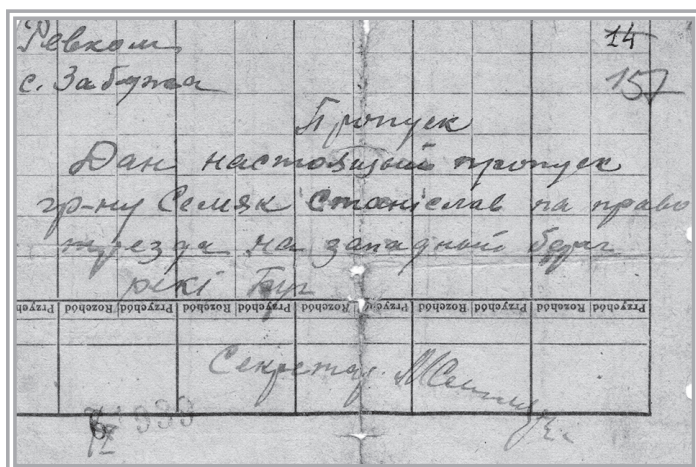 Ревком
с. Забужа
14
157
Пропуск
Дан настоящый пропуск
гр-ну Семяк Станіслав на право
на западной берег
рікі Буг
Przychód Rozchód Przychód Rozchód Przychód Rozchód Przychód Rozchód Przychód Rozchód Przychód
Секретар